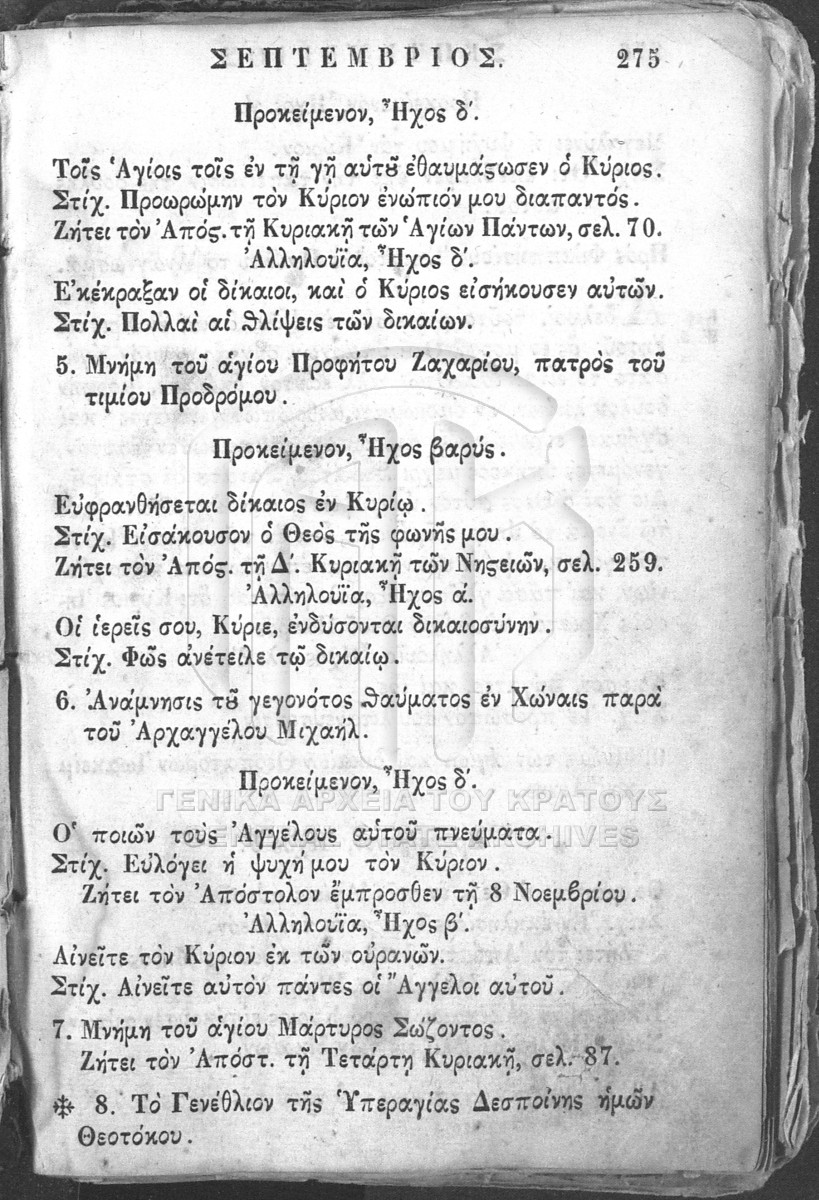 ΣΕΠΤΕΜΒΡΙΟΣ. 275
Προκείμενον, Ἦχος δ΄.
Τοῖς Ἁγίοις τοῖς ἐν τῇ γῇ αὑτȣ͂ ἐθαυμάϛωσεν ὁ Κύριος.
Στίχ. Προωρώμην τὸν Κύριον ἐνώπιόν μου διαπαντός.
Ζήτει τὸν Ἀπόϛ. τῇ Κυριακῇ τῶν Ἁγίων Πάντων, σελ. 70.
Ἀλληλούϊα, Ἦχος δ΄.
Ἐκέκραξαν οἱ δίκαιοι, καὶ ὁ Κύριος εἰσήκουσεν αὐτῶν.
Στίχ. Πολλαὶ αἱ ϑλίψεις τῶν δικαίων.
5. Μνήμη τοῦ ἁγίου Προφήτου Ζαχαρίου, πατρὸς τοῦ
τιμίου Προδρόμου.
Προκείμενον, Ἦχος βαρύς.
Εὐφρανθήσεται δίκαιος ἐν Κυρίῳ.
Στίχ. Εἰσάκουσον ὁ Θεὸς τῆς φωνῆς μου.
Ζήτει τὸν Ἀπόϛ. τῇ Δ΄. Κυριακῇ τῶν Νηϛειῶν, σελ. 259.
Ἀλληλούϊα, Ἦχος ά.
Οἱ ἱερεῖς σου, Κύριε, ἐνδύσονται δικαιοσύνην.
Στίχ. Φῶς ἀνέτειλε τῷ δικαίῳ.
6. Ἀνάμνησις τȣ͂ γεγονότος ϑαύματος ἐν Χώναις παρὰ
τοῦ Ἀρχαγγέλου Μιχαήλ.
Προκείμενον, Ἦχος δ΄.
ΓΕΝΙΚΑ ΑΡΧΕΙΑ ΤΟΥ ΚΡΑΤΟΥΣ
Ὁ ποιῶν τοὺς Ἀγγέλους αὑτοῦ πνεύματα.
GENERAL STATE ARCHIVES
Στίχ. Εὐλόγει ἡ ψυχή μου τὸν Κύριον.
Ζήτει τὸν Ἀπόστολον ἔμπροσθεν τῇ 8 Νοεμβρίου.
Ἀλληλούϊα, Ἦχος β΄.
Αἰνεῖτε τὸν Κύριον ἐκ τῶν οὐρανῶν.
Στίχ. Αἰνεῖτε αὐτὸν πάντες οἱ Ἄγγελοι αὐτοῦ.
7. Μνήμη τοῦ ἁγίου Μάρτυρος Σώζοντος.
Ζήτει τὸν Ἀπόστ. τῇ Τετάρτῃ Κυριακῇ, σελ. 87.
8. Τὸ Γενέθλιον τῆς Ὑπεραγίας Δεσποίνης ἡμῶν
Θεοτόκου.